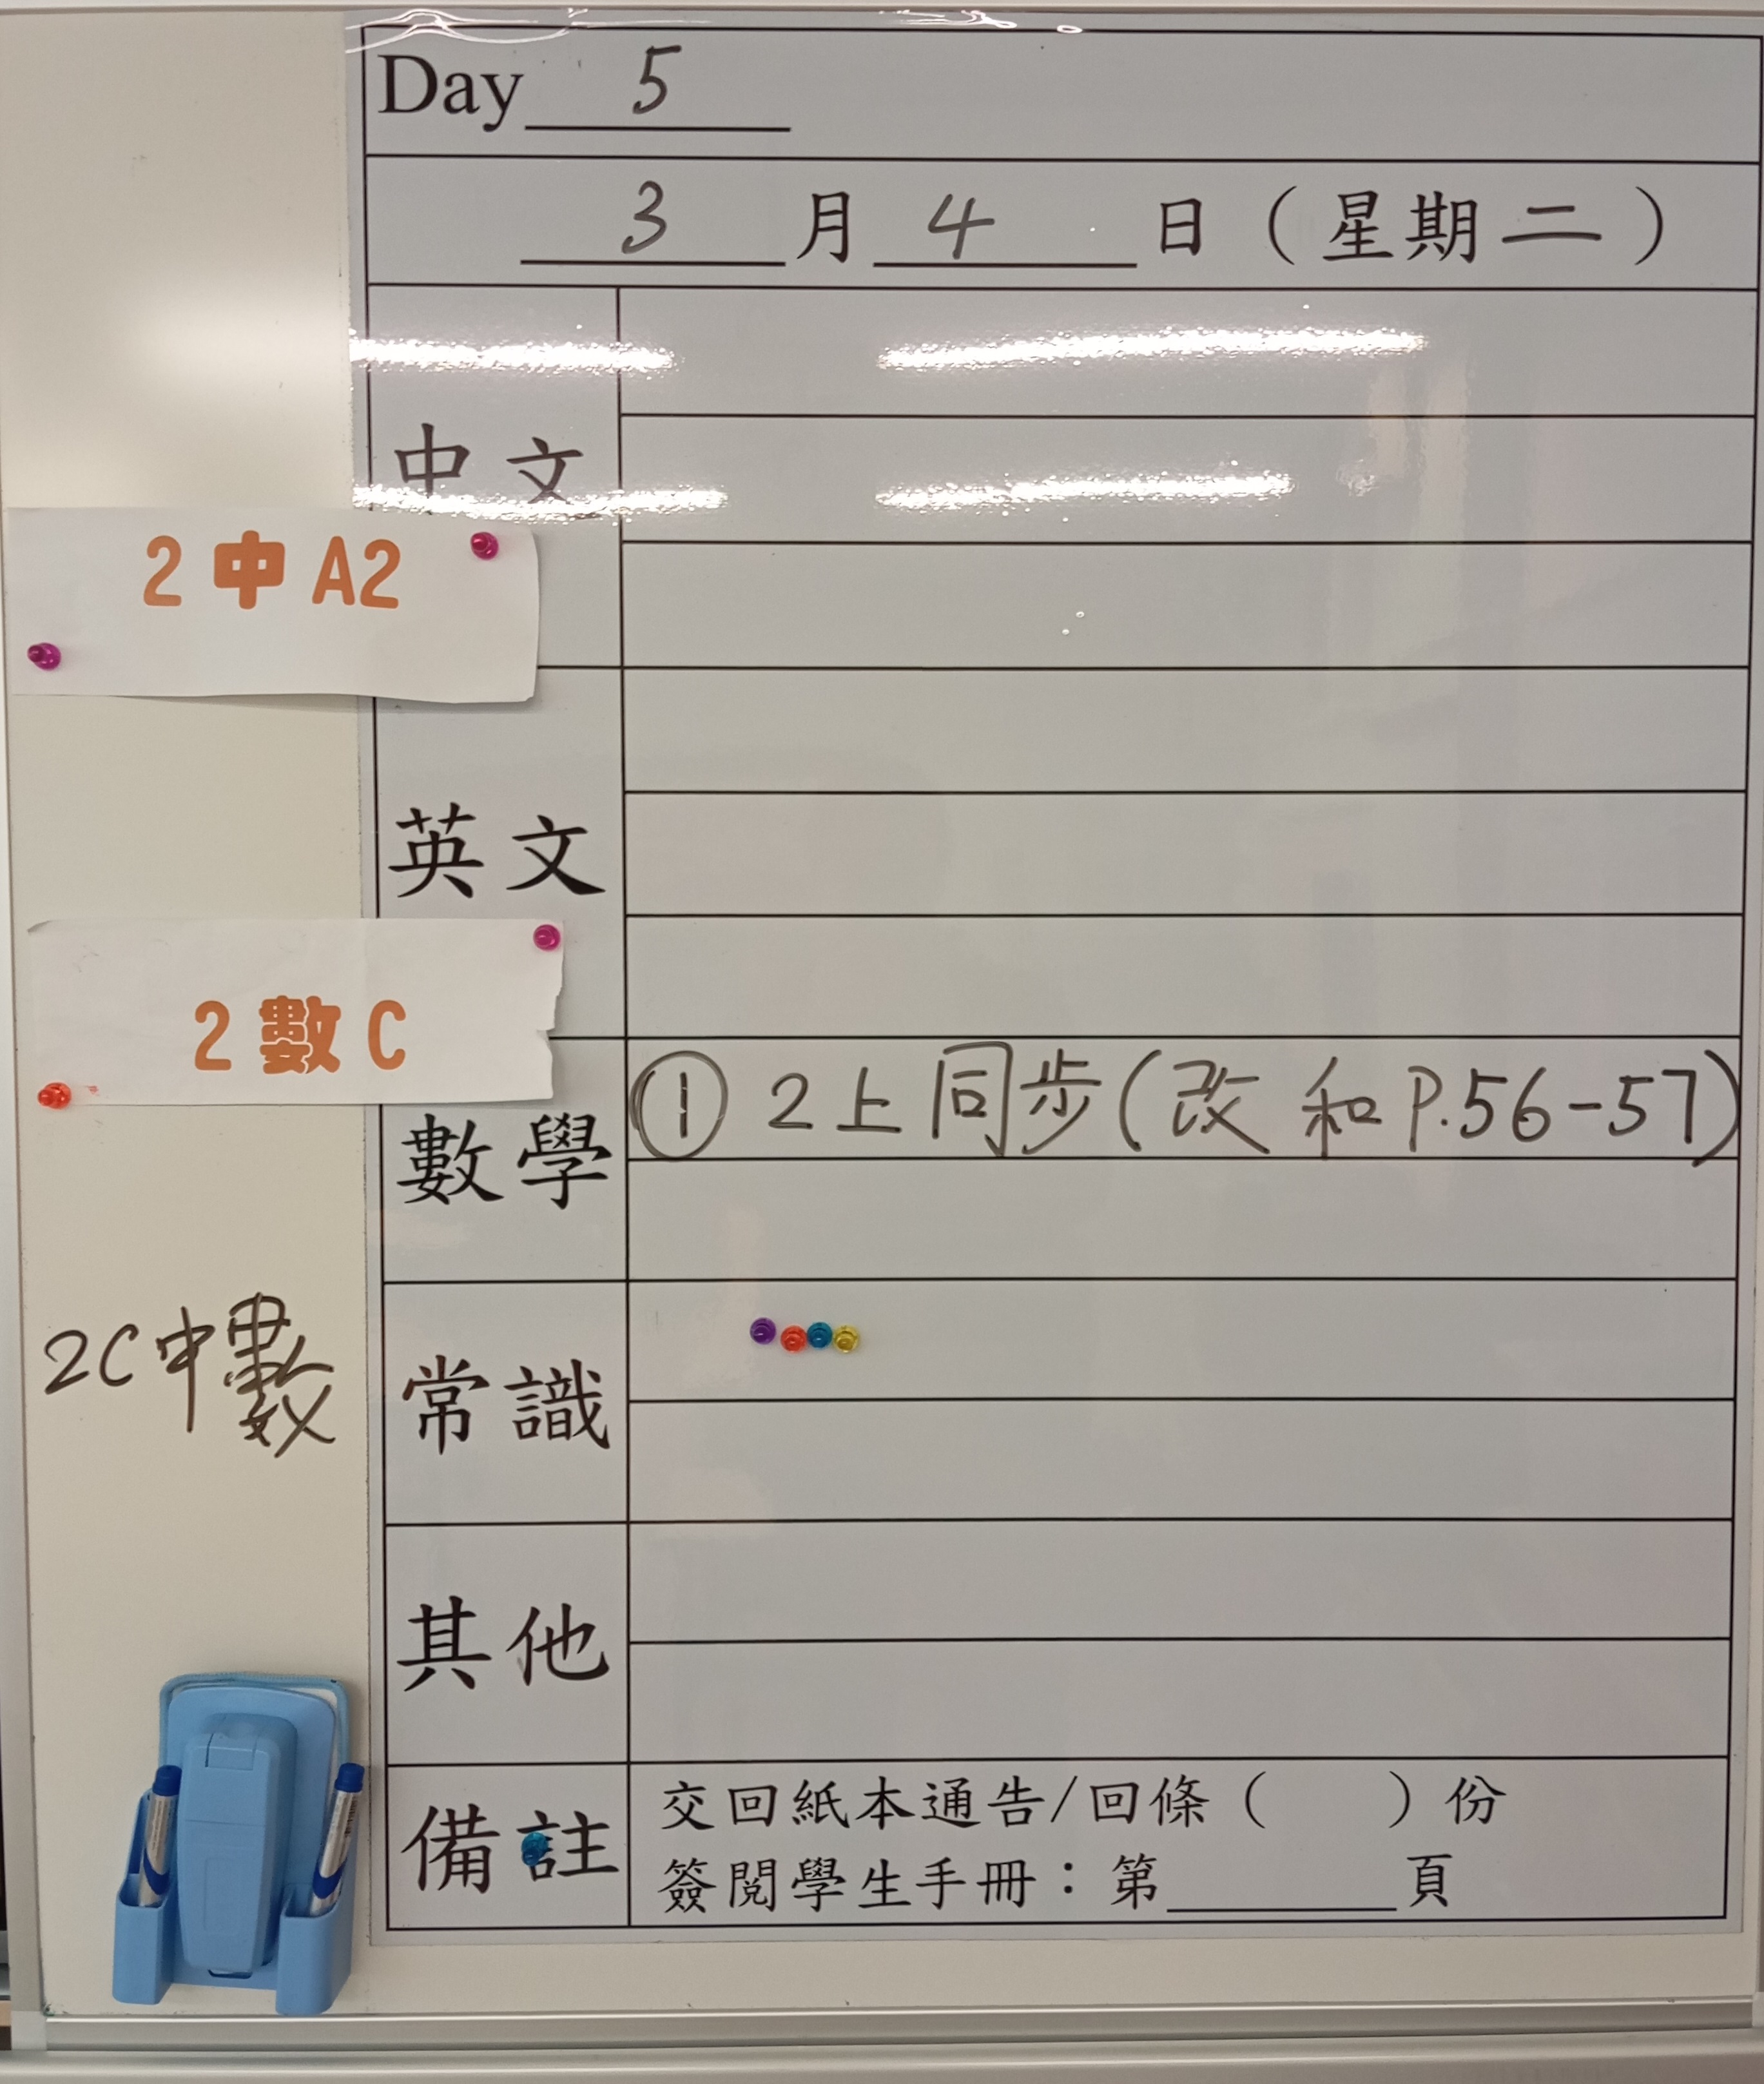 Day 5
3 月 4 日（星期二）
中文
2 中 A2
英文
2 數 C
數學
① 2上同步(改和P.56-57)
2C中數
常識
其他
備註
交回紙本通告/回條（ ）份
簽閱學生手冊：第 頁